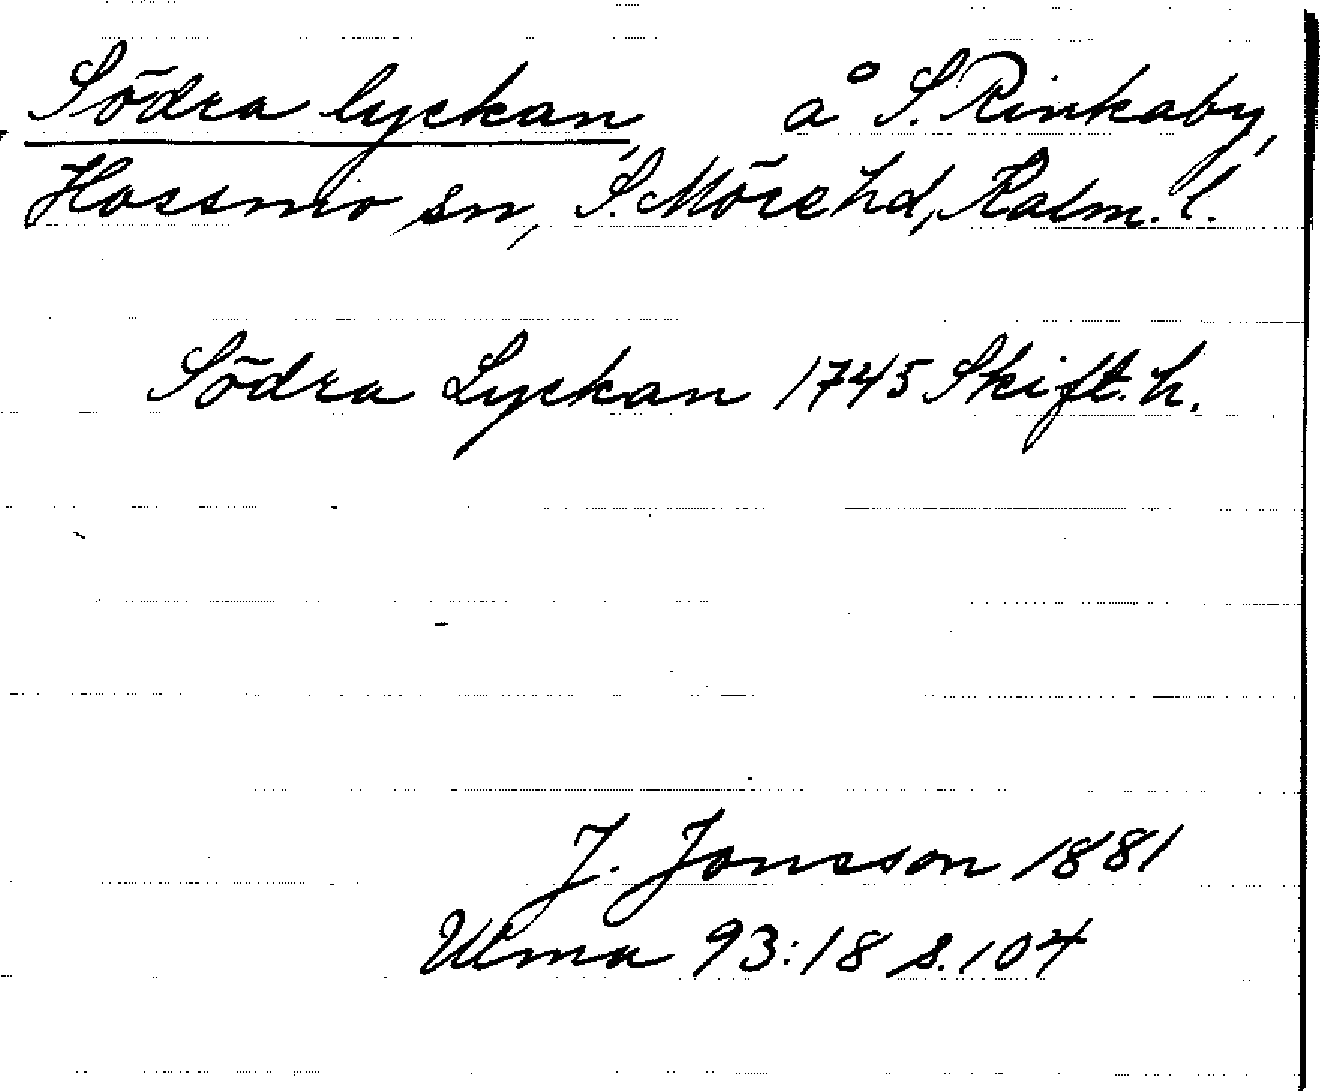 Södra lyckan, å S. Rinkaby,
Hossmo sn, S. Möre hd, Kalm. l.
Södra Lyckan 1745 Skift. h.
J. Jonsson 1881
Ulma 93:18 s. 104